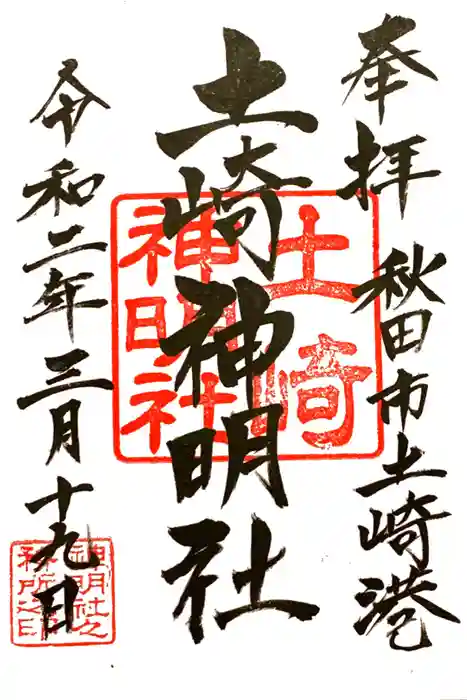 奉拝 秋田市土崎港
土崎神明社
土崎
神明社
令和二年三月十九日
神明社之
務所之印